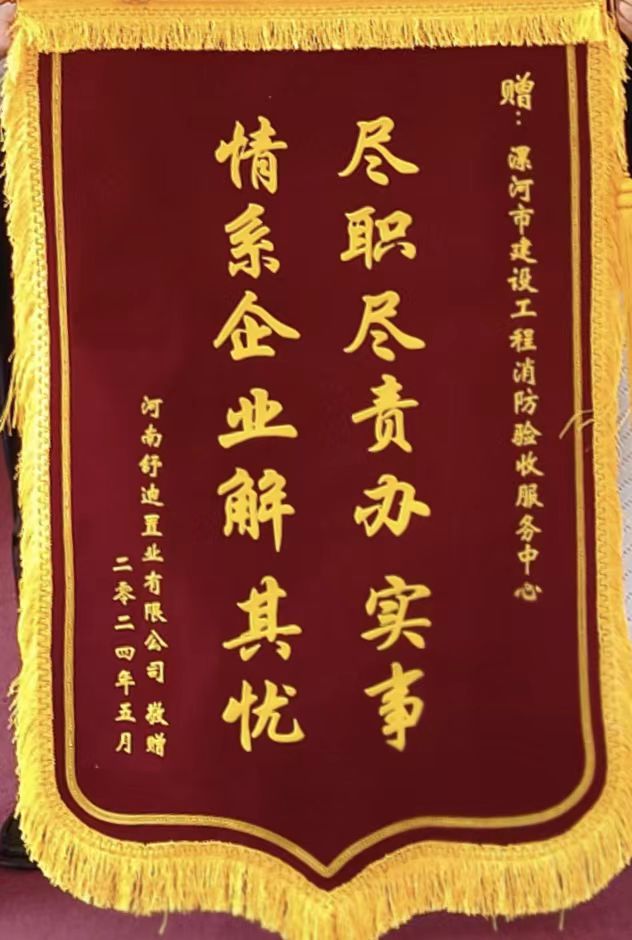 赠：漯河市建设工程消防验收服务中心
尽职尽责办实事
情系企业解其忧
河南舒迪置业有限公司 敬赠
二零二四年五月